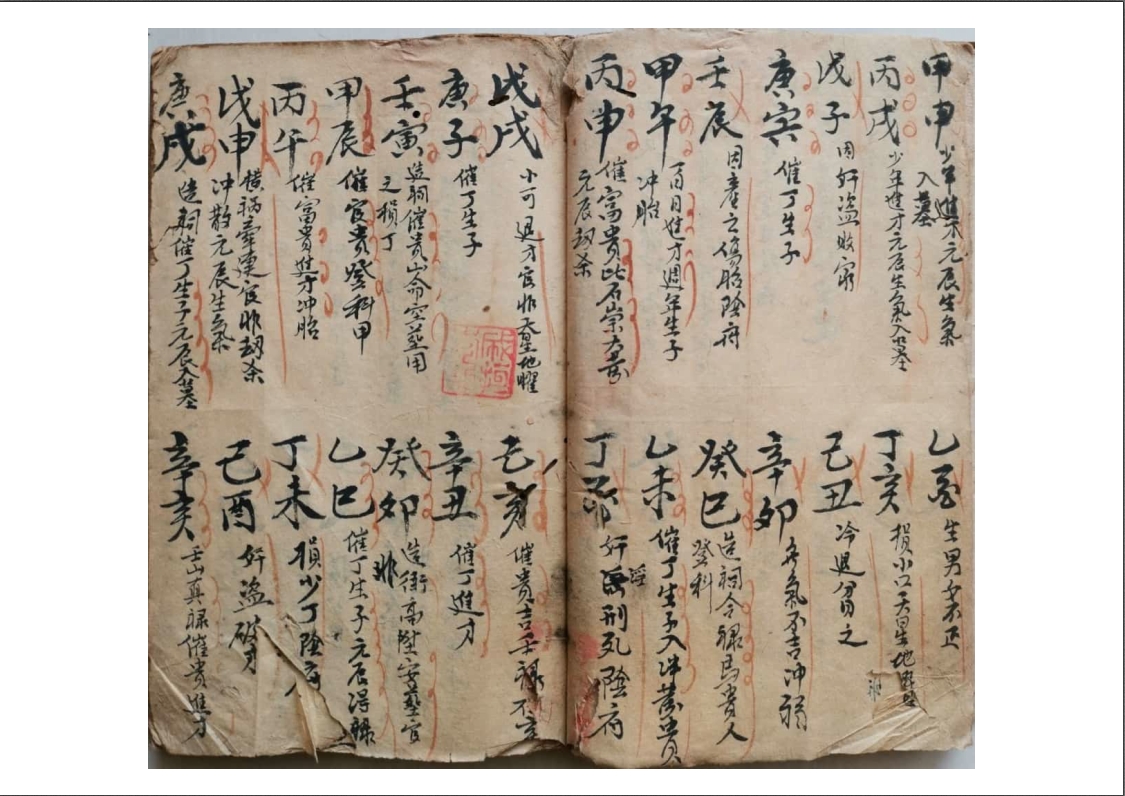 甲申 少年進才元辰生氣
入墓
丙戌 少年進才元辰生氣入墓
戊子 因奸盜敗窮
庚寅 催丁生子
壬辰 因產之傷胎陰府
甲午 百日進才週年生子
冲胎
丙申 催富貴此石崇大葬
元辰劫杀
乙酉 生男女不正
丁亥 損小口天星地曜
己丑 冷退分之
辛卯 吉冲
癸巳 造祠合祿馬貴人
登科
乙未 催丁生子入
丁酉 奸淫刑死陰府
戊戌 小可退才官非天星地曜
庚子 催丁生子
壬寅 造祠催貴山命空並用
之損丁
甲辰 催官貴登科甲
丙午 催富貴進才冲胎
戊申 橫禍牽連官非劫杀
冲散元辰生氣
庚戌 造祠催丁生子元辰入墓
己亥 催貴吉壬祿不
辛丑 催丁進才
癸卯 造衙高陞安葬官
非
乙巳 催丁生子元辰得祿
丁未 損少丁陰府
己酉 奸盜破才
辛亥 壬山真祿催貴進才